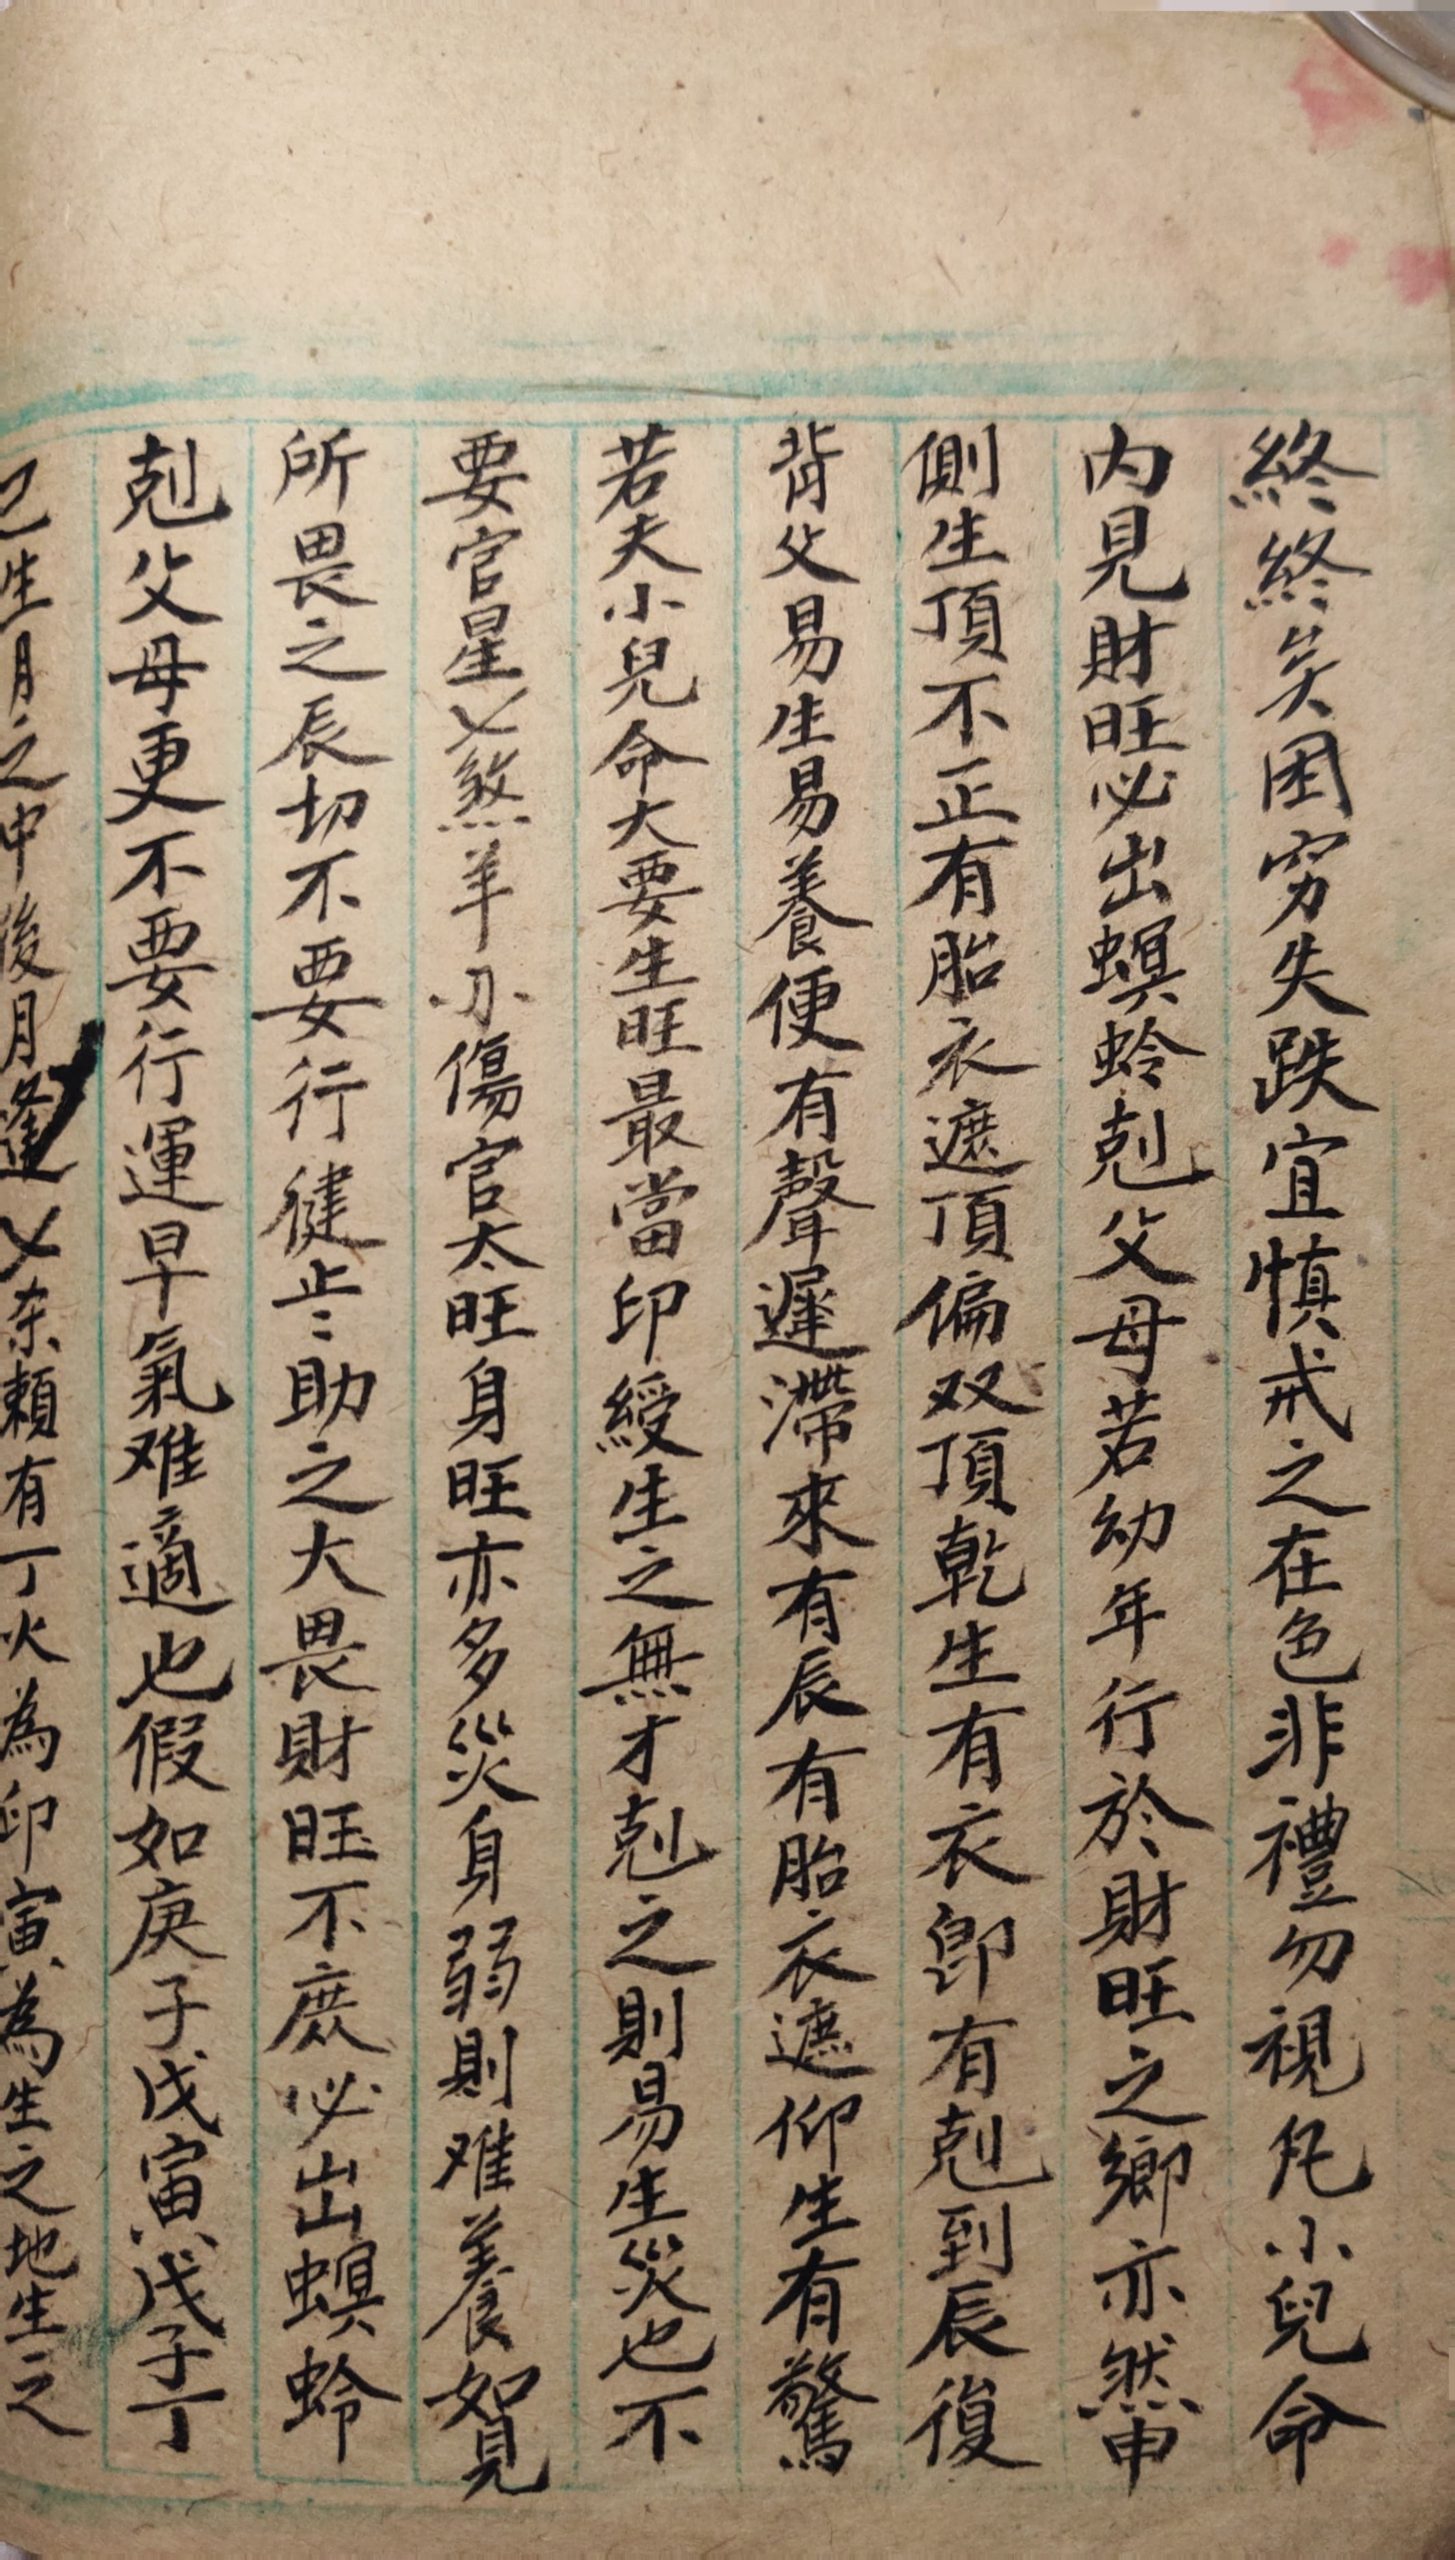 終終矣困穷失跌宜慎戒之在色非禮勿視凡小兒命
内見財旺必出螟蛉剋父母若幼年行於財旺之鄉亦然申
側生頂不正有胎衣遮頂偏双頂乾生有衣即有剋到辰復
背父易生易養便有聲遲滯來有辰有胎衣遮仰生有驚
若夫小兒命大要生旺最當印綬生之無才剋之則易生災也不
要官星〤煞羊刃傷官太旺身旺亦多災身弱則难養如見
所畏之辰切不要行健步助之大畏財旺不庶必出螟蛉
剋父母更不要行運早氣难適也假如庚子戊寅戊子丁
巳生月之中後月逢〤杀賴有丁火為印寅為生之地生之